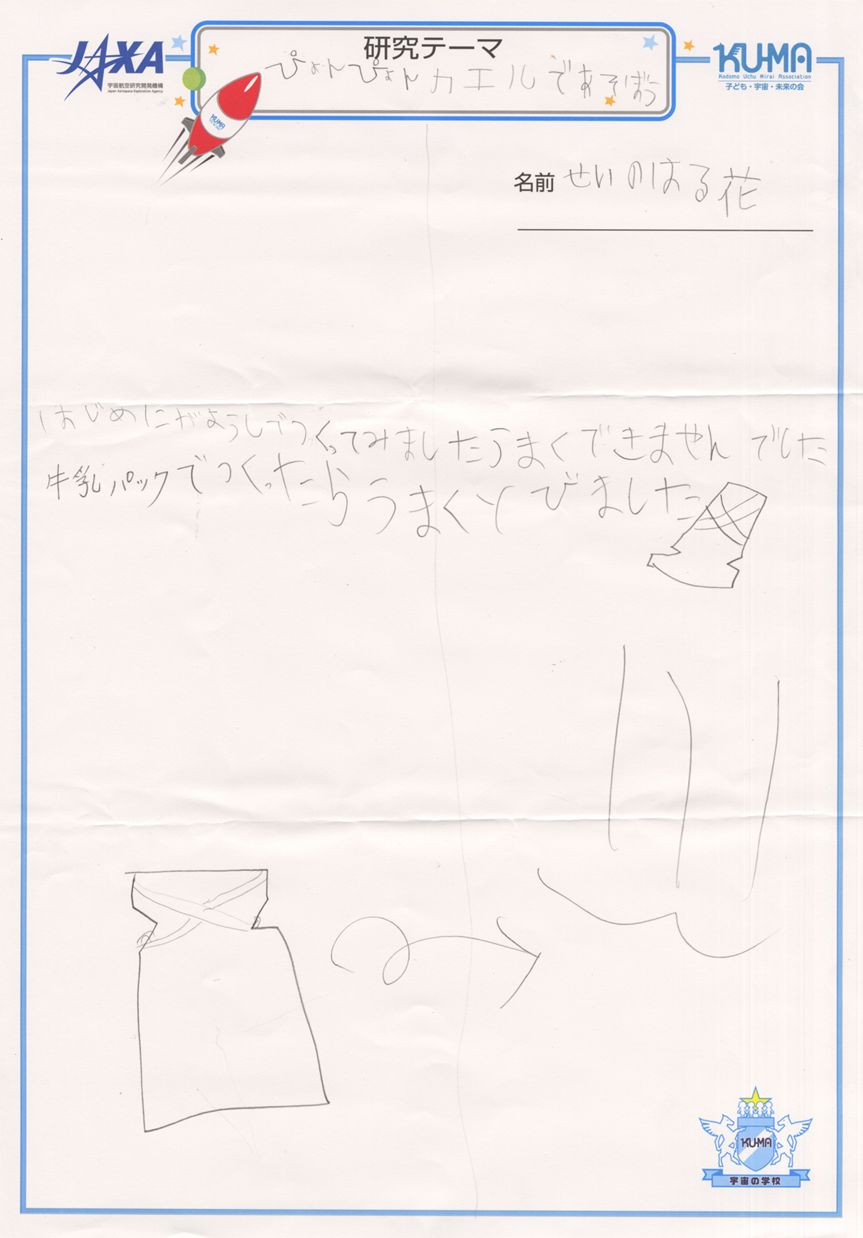 JAXA
宇宙航空研究開発機構
Japan Aerospace Exploration Agency
研究テーマ
ぴょんぴょんカエルであそぼう
KU-MA
Kodomo Uchu Mirai Association
子ども・宇宙・未来の会
KU-MA
名前 せいのはる花
はじめにがようしでつくってみましたうまくできませんでした
牛乳パックでつくったらうまくとびました
KU-MA
宇宙の学校